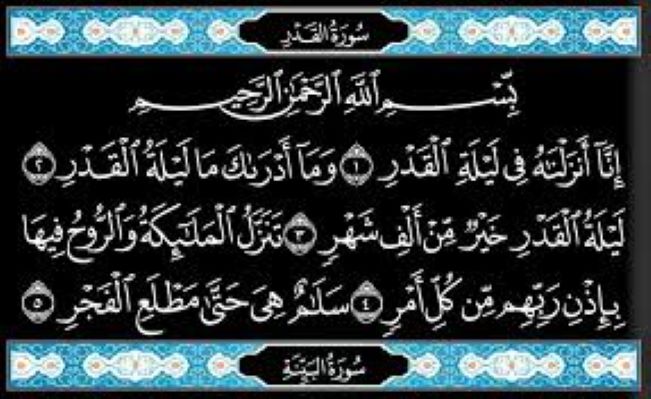 سُورَةُ القَدْرِ
بِّسْمِ ٱللَّهِ ٱلرَّحْمَٰنِ ٱلرَّحِيمِ
إِنَّآ أَنزَلْنَٰهُ فِى لَيْلَةِ ٱلْقَدْرِ ١ وَمَآ أَدْرَىٰكَ مَا لَيْلَةُ ٱلْقَدْرِ ٢
لَيْلَةُ ٱلْقَدْرِ خَيْرٌ مِّنْ أَلْفِ شَهْرٍ ٣ تَنَزَّلُ ٱلْمَلَٰٓئِكَةُ وَٱلرُّوحُ فِيهَا
بِإِذْنِ رَبِّهِم مِّن كُلِّ أَمْرٍ ٤ سَلَٰمٌ هِىَ حَتَّىٰ مَطْلَعِ ٱلْفَجْرِ ٥
سُورَةُ البَيِّنَةِ